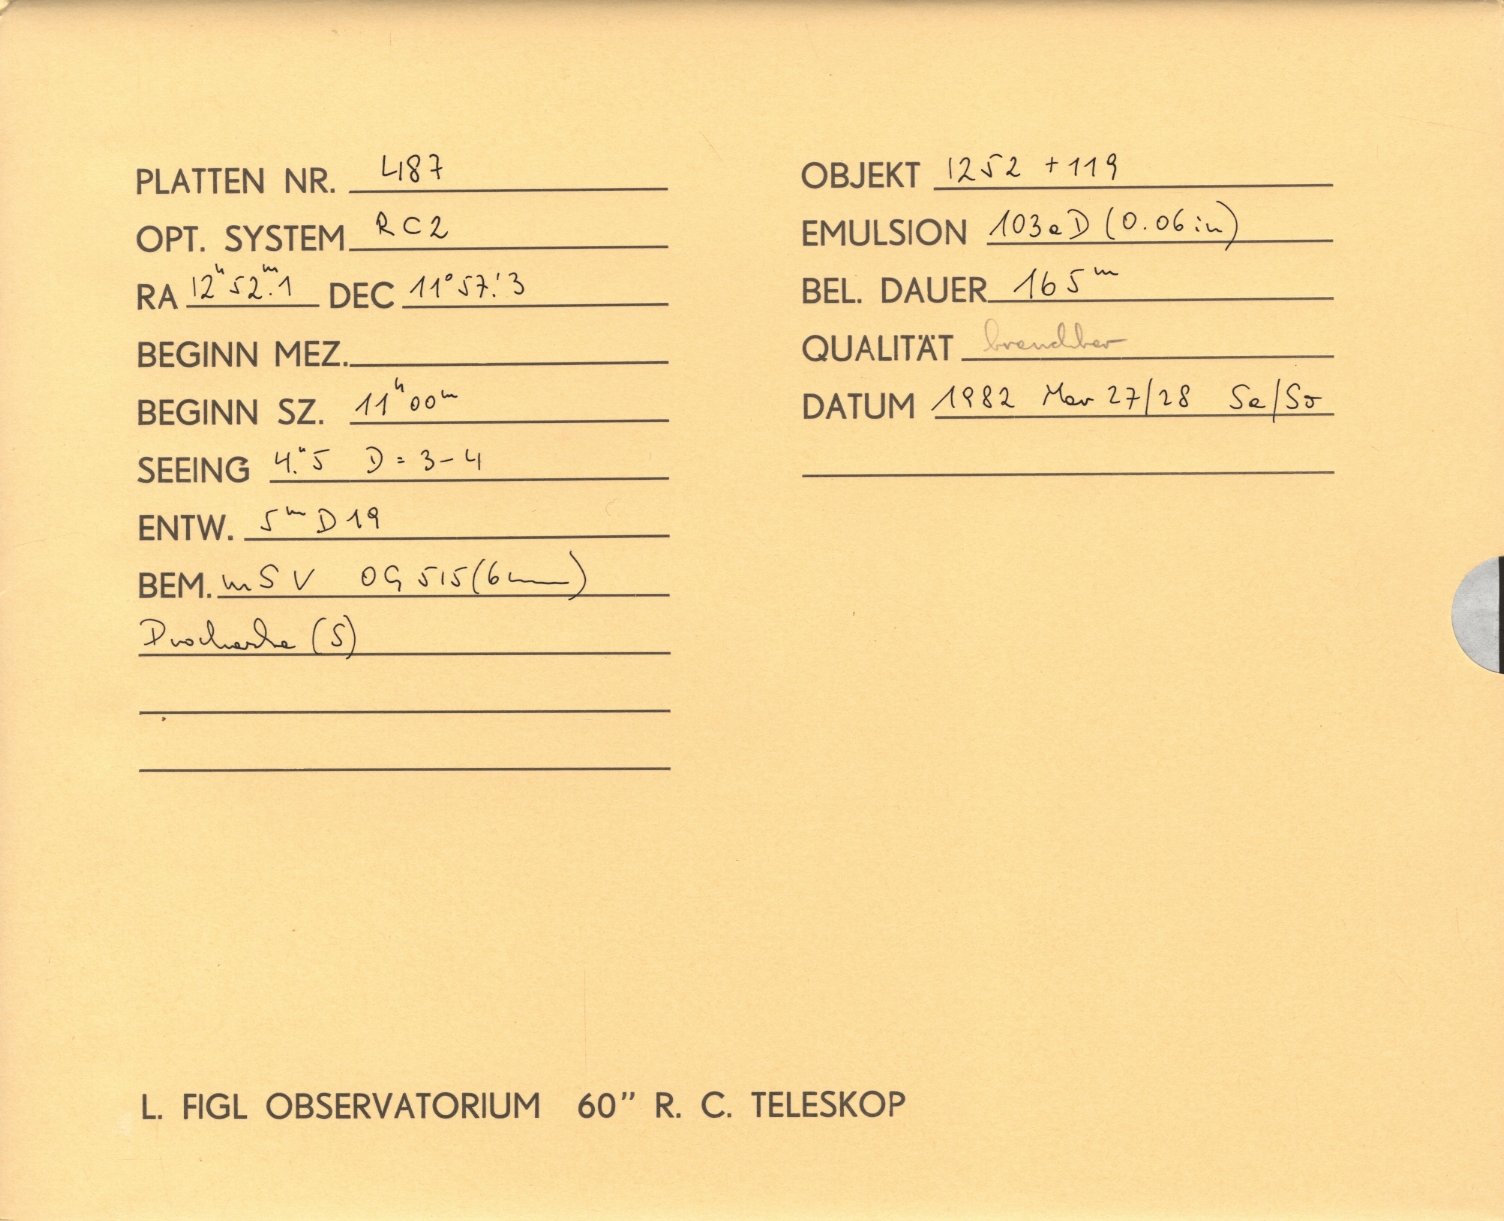 PLATTEN NR. 487
OPT. SYSTEM RC2
RA 12ʰ52ᵐ.1 DEC 11°57.'3
BEGINN MEZ.
BEGINN SZ. 11ʰ00ᵐ
SEEING 4."5 D = 3-4
ENTW. 5ᵐ D19
BEM. mSV OG 515 (6mm)
(S)
OBJEKT 1252 +119
EMULSION 103aD (0.06 in)
BEL. DAUER 165ᵐ
QUALITÄT brauchbar
DATUM 1982 Mar 27/28 Sa/So
L. FIGL OBSERVATORIUM 60" R. C. TELESKOP